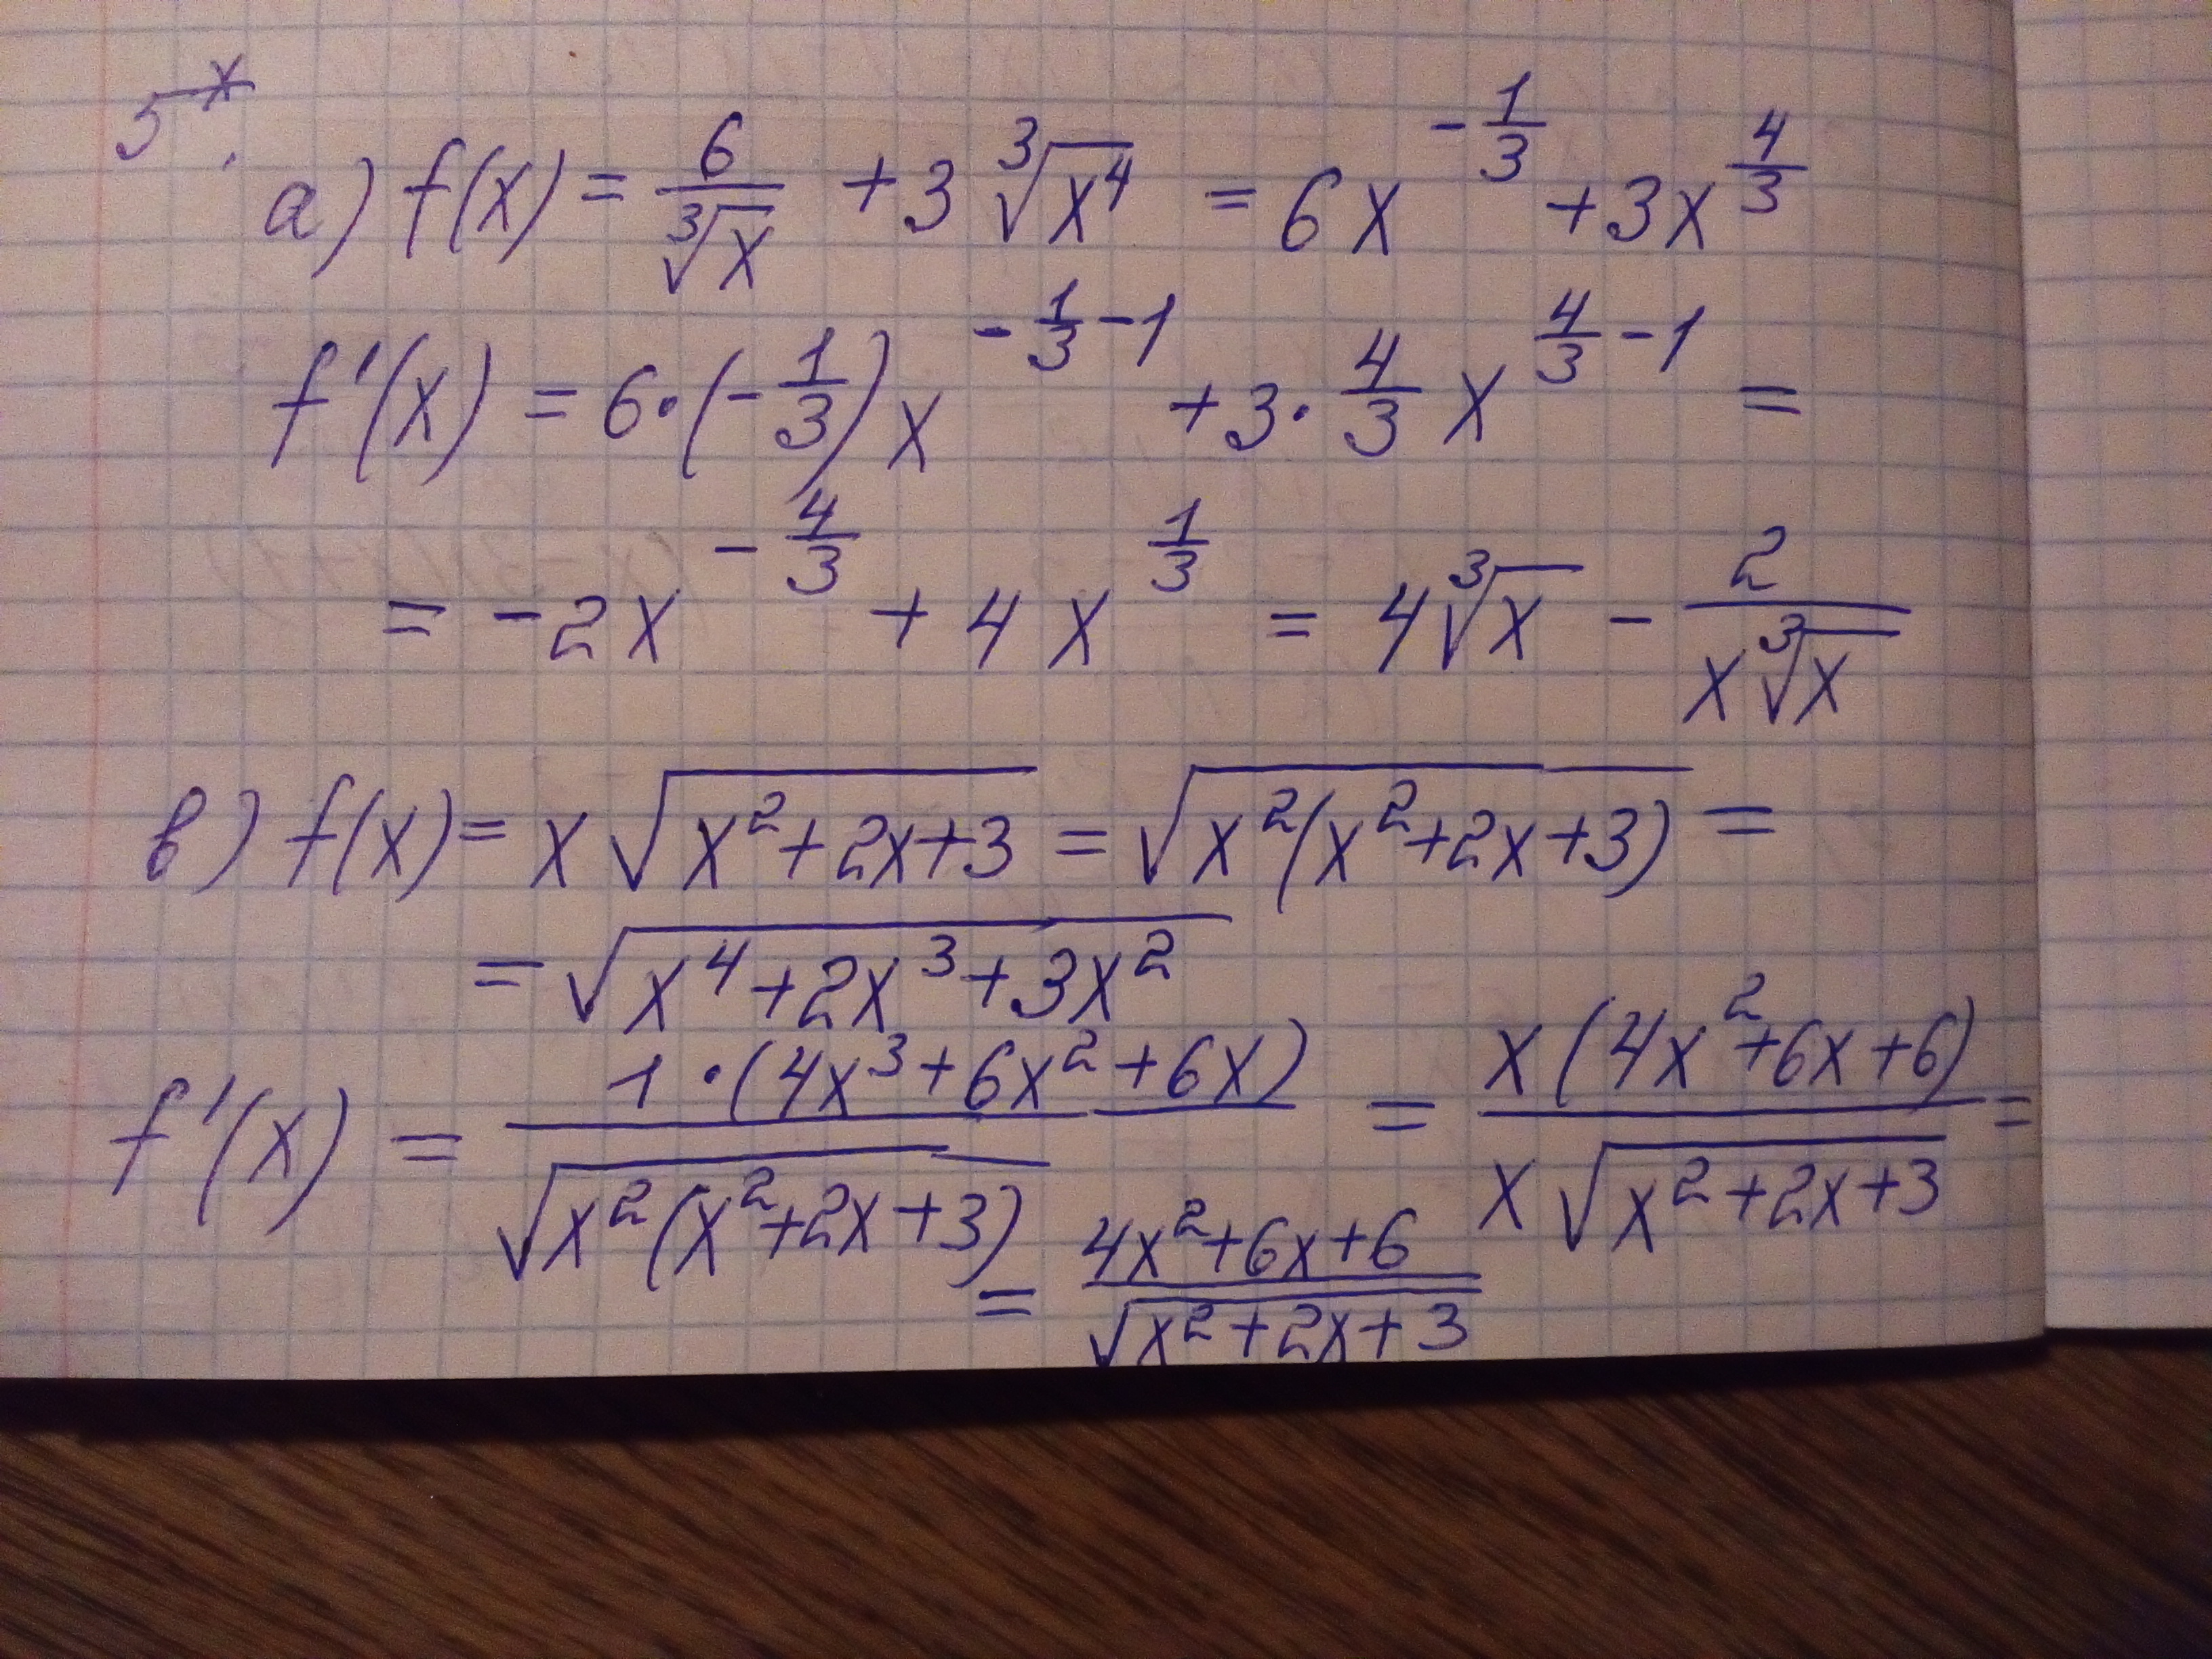 5*.
а) f(x) = 6/∛x + 3∛x⁴ = 6x^(-1/3) + 3x^(4/3)
f'(x) = 6·(-1/3)x^(-1/3-1) + 3·4/3 x^(4/3-1) =
= -2x^(-4/3) + 4x^(1/3) = 4∛x - 2/(x∛x)
в) f(x) = x√(x²+2x+3) = √(x²(x²+2x+3)) =
= √(x⁴+2x³+3x²)
f'(x) = 1·(4x³+6x²+6x)/√(x²(x²+2x+3)) = x(4x²+6x+6)/(x√(x²+2x+3)) =
= (4x²+6x+6)/√(x²+2x+3)